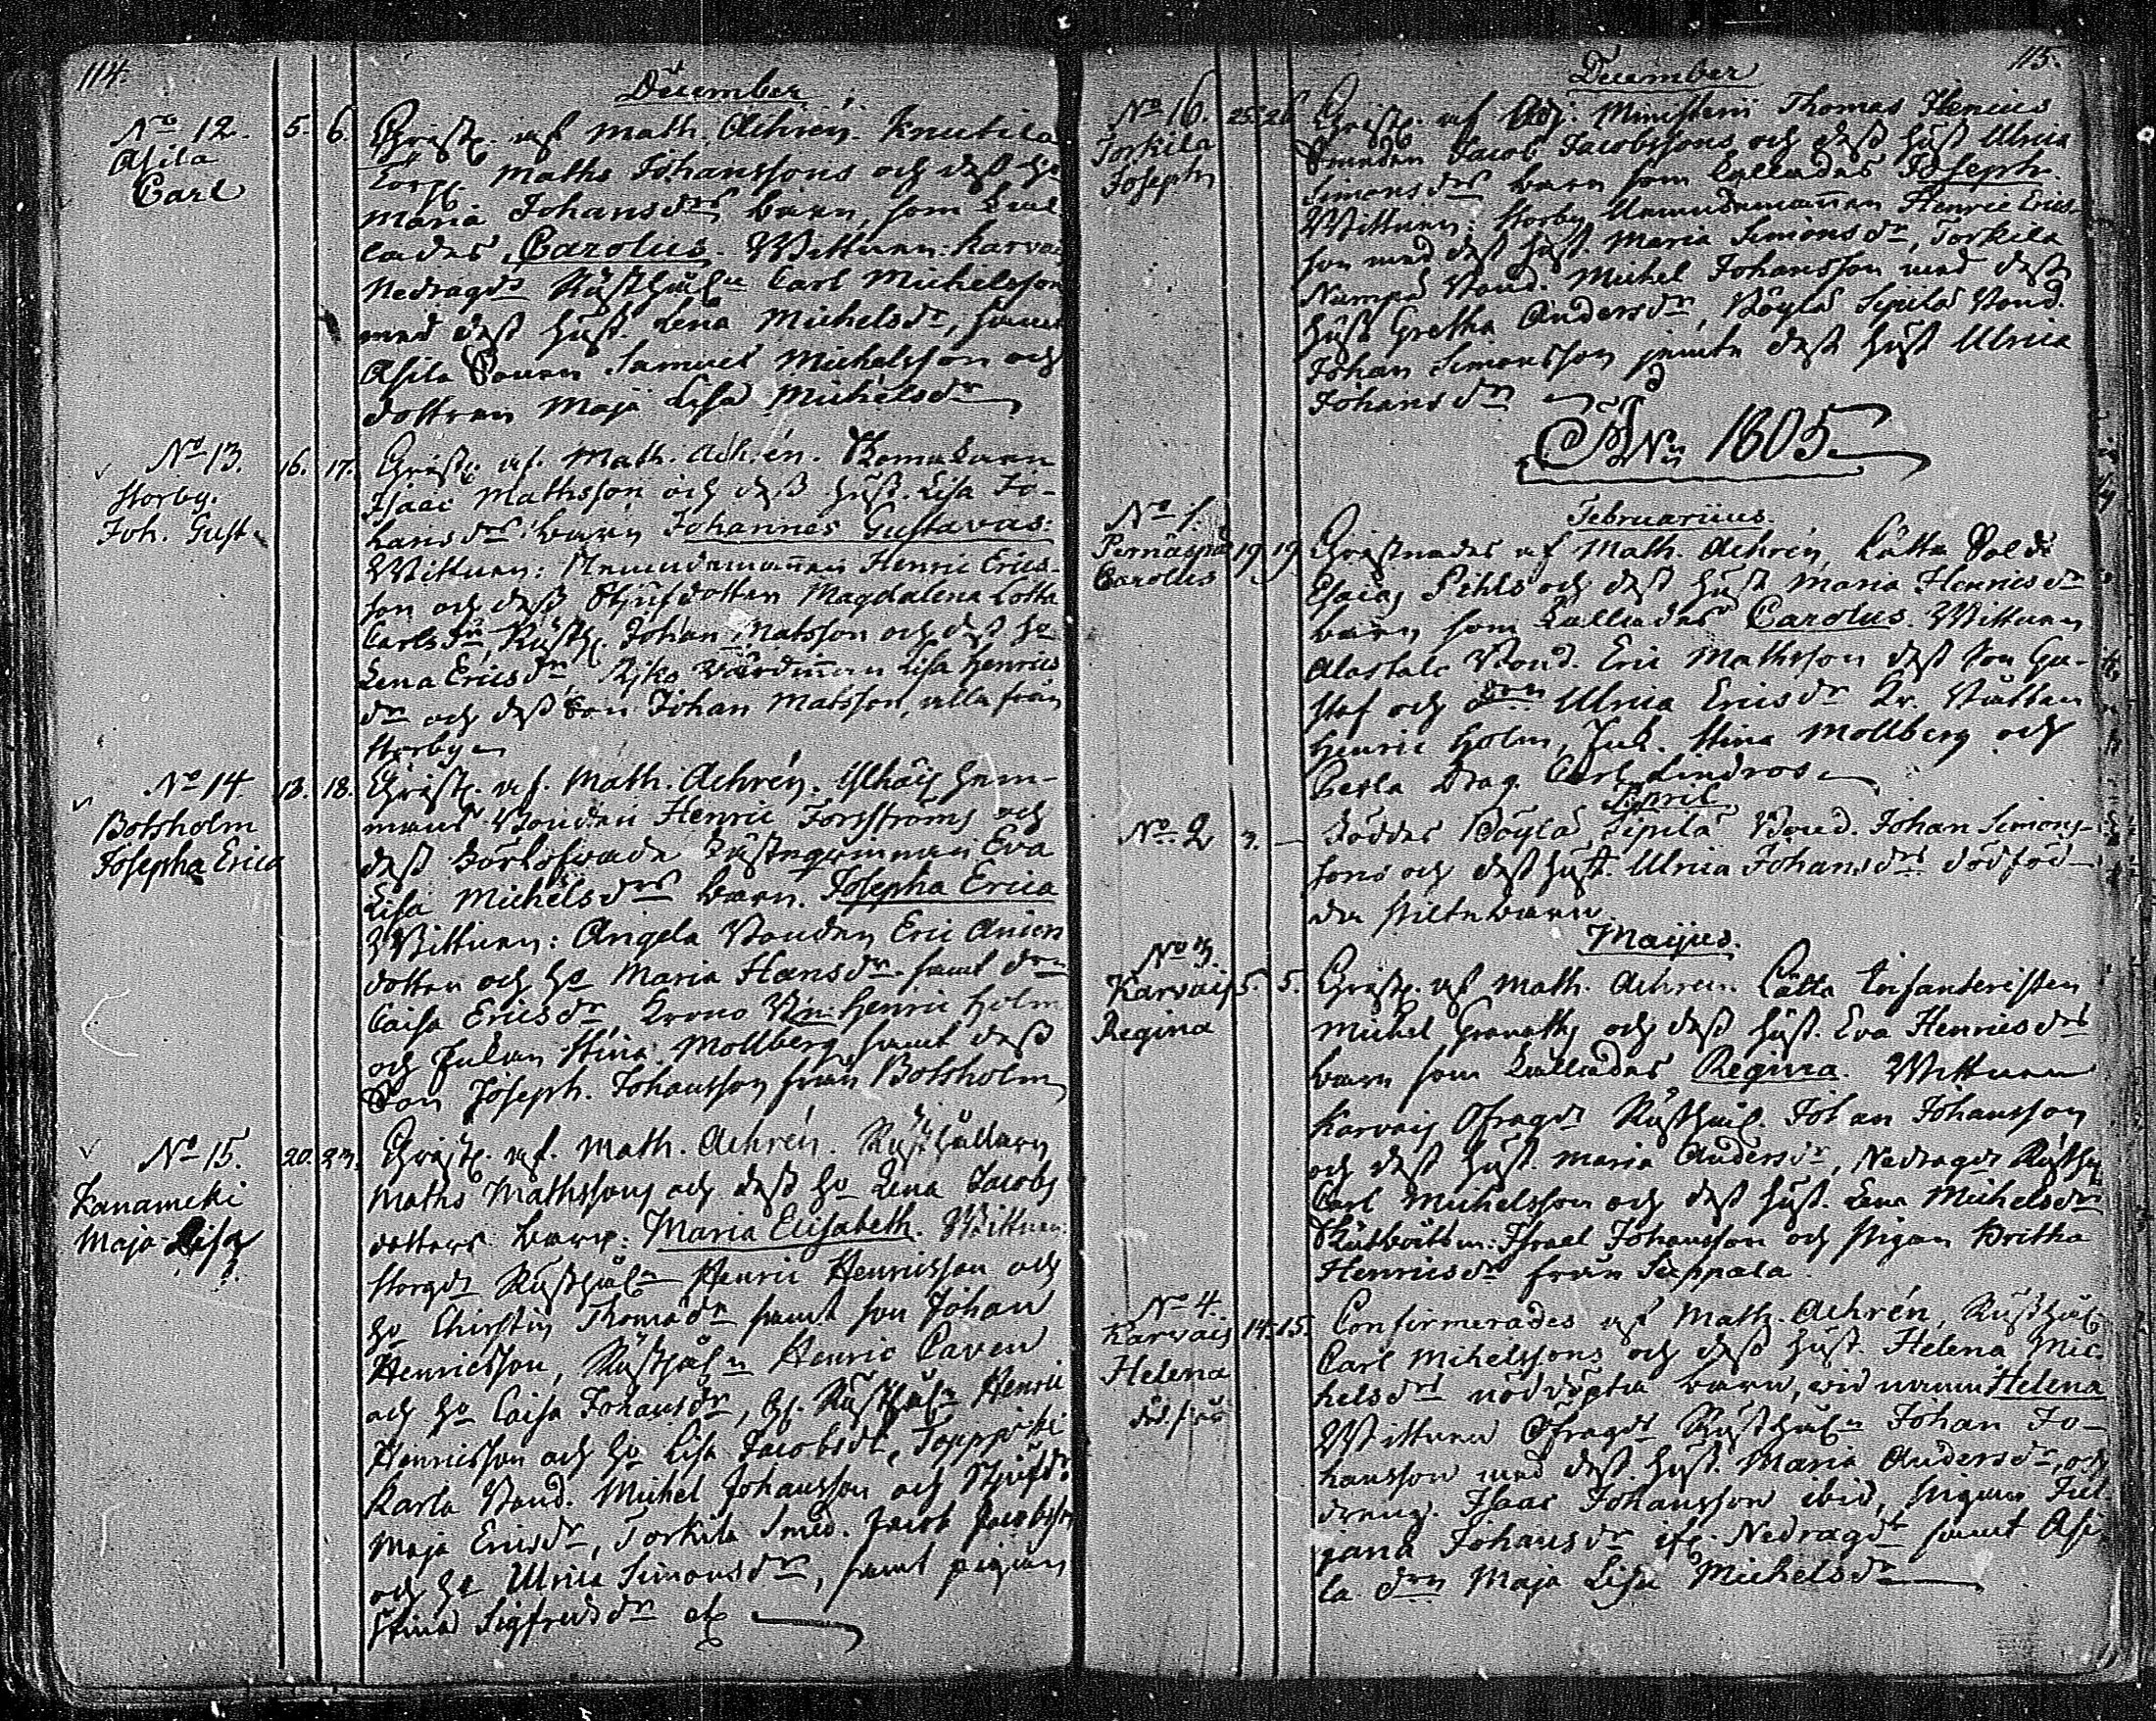 114.
December
No 12.
Asila
Carl
5. 6.
Christ. af Math. Achrén. Knutila
Torp. Maths Johanssons och dess ho
Maria Johansdrs barn, som kal-
lades Carolus. Wittnen: Karvais
Nedragds Rusthåln Carl Michelsson
med dess hust. Lena Michelsdr, samt
Asila Sonen Samuel Michelsson och
dottren Maja Lisa Michelsdr
No 13.
Storby.
Joh. Gust.
16. 17.
Christ. af Math. Achrén.
Isaac Mathsson och dess hust. Lisa Jo-
hansdrs barn Johannes Gustavas:
Wittnen: Nemndemannen Henric Erics-
son och dess Stjufdotter Magdalena Lotta
Carlsdr, Rusth. Johan Matsson och dess ho
Lena Ericsdr, Lisa Henrics
dr och dess son Johan Matsson, alla från
Storby
No 14
Botsholm
Josepha Erica
13. 18.
Christ. af Math. Achrén. Ylhäis hem-
mans Bonden Henric Forsströms och
dess Eva
Lisa Michelsdrs barn. Josepha Erica
Wittnen: Angela Bonden Eric
dotter och ho Maria Hansdr samt drn
Caisa Ericsdr Henric Holm
och Enkan Stina Mollberg samt dess
Son Joseph Johansson från Botsholm
No 15.
Kanameki
Maja Lisa
20. 23.
Christ. af Math. Achrén. Rusthållarn
Maths Mathssons och dess ho Lena Jacobs
dotters barn: Maria Elisabeth. Wittnen:
Storgds Rusthåln Henric Henricsson och
ho Christin Thomadr samt son Johan
Henricsson, Rusthåln Henric Paven
och ho Caisa Johansdr, Rusthåln Henric
Henricsson och ho Lisa Jacobsdr,
Karla Bond. Michel Johansson och Stjufdr
Maja Ericsdr, Torkila Smed. Jacob Jacobsson
och ho Ulrica Simonsdr, samt pigan
Stina Sigfredsdr
115.
December
No 16.
Torkila
Joseph
25. 26.
Christ. af Adj. Ministerii Thomas Henius
Smeden Jacob Jacobssons och dess hust Ulrica
Simonsdrs barn som kallades Joseph.
Wittnen: Storby Nemndemannen Henric Erics-
son med dess hust. Maria Simonsdr, Torkila
Numpa Bond. Michel Johansson med dess
hust Gretha Andersdr, Böylä Sipilä Bond.
Johan Simonsson jemte dess hust Ulrica
Johansdr
1805.
Februarius.
No 1.
Pernäspä
Carolus
19 19.
Christnades af Math. Achrén, Lätta Sold.
Esaias Pihls och dess hust Maria Henricsdr
barn som kallades Carolus. Wittnen
Alastalo Bond. Eric Mathsson dess son Gu-
staf och drn Ulrica Ericsdr
Henric Holm, Enk. Stina Mollberg och
Drag. Carl Lindros
April
No 2
3. —
Föddes Böylä Sipilä Bond. Johan Simons-
sons och dess hust. Ulrica Johansdrs dödföd-
da piltebarn.
Maijus.
No 3.
Karvais
Regina
5. 5.
Christ. af Math. Achrén. Lätta Infanteristen
Michel Granroths och dess hust. Eva Henricsdrs
barn som kallades Regina. Wittnen
Karvais Ofragds Rusthål. Johan Johansson
och dess hust. Maria Andersdr, Nedragds Rusth.
Carl Michelsson och dess hust. Lena Michelsdr
Israel Johansson och pigan Britha
Henricsdr från Suppala.
No 4.
Karvais
Helena
14. 15.
Confirmerades af Math. Achrén, Rusthål.
Carl Mihelssons och dess hust. Helena Mic-
helsdrs nöddöpta barn, vid namn Helena
Wittnen Ofragds Rusthåln Johan Jo-
hansson med dess hust. Maria Andersdr, och
dreng. Isaac Johansson ibid, pigan Jul-
jana Johansdr Nedragds samt Asi-
la drn Maja Lisa Michelsdr